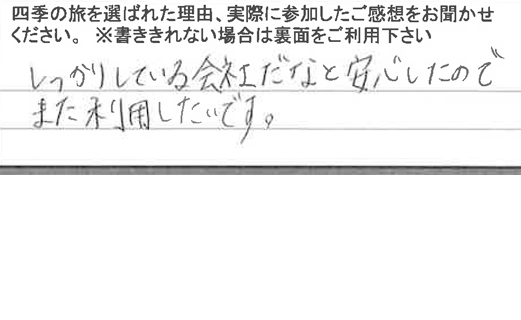 四季の旅を選ばれた理由、実際に参加したご感想をお聞かせ
ください。 ※書ききれない場合は裏面をご利用下さい
しっかりしている会社だなと安心したので
また利用したいです。